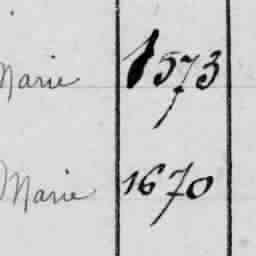 Marie 1573
Marie 1670